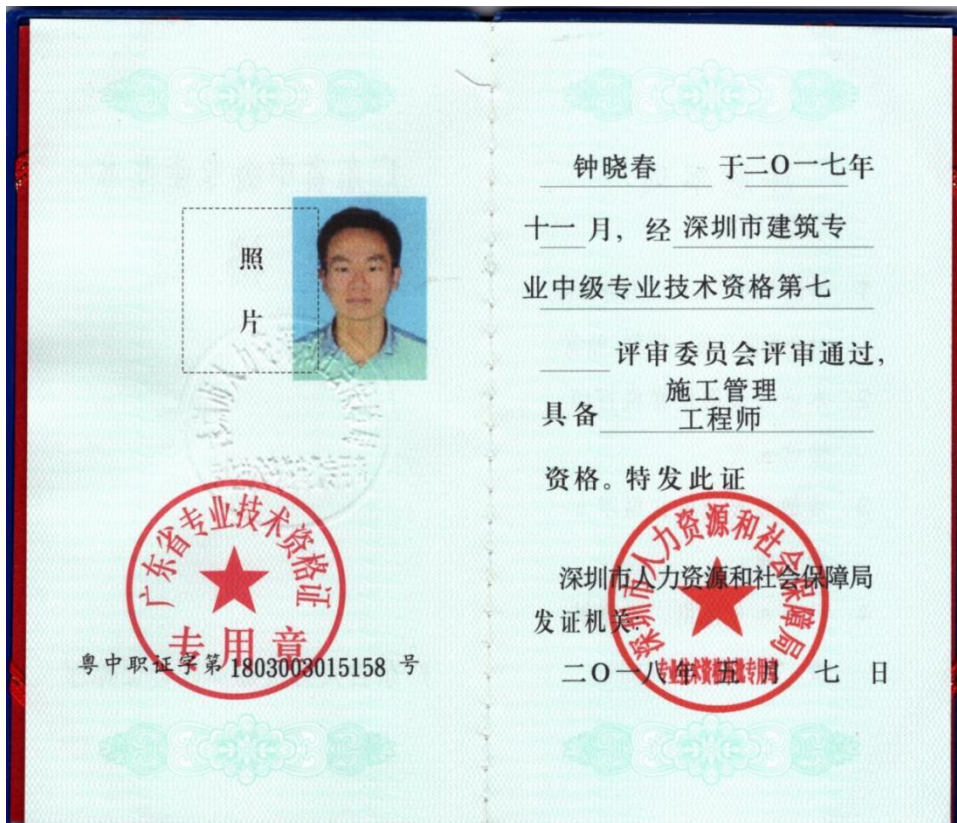 照
片
广东省专业技术资格证
专用章
粤中职证字第1803003015158号
钟晓春 于二〇一七年
十一月，经深圳市建筑专
业中级专业技术资格第七
评审委员会评审通过，
施工管理
具备 工程师
资格。特发此证
深圳市人力资源和社会保障局
深圳市人力资源和社会保障局
发证机关：
二〇一八年五月七日